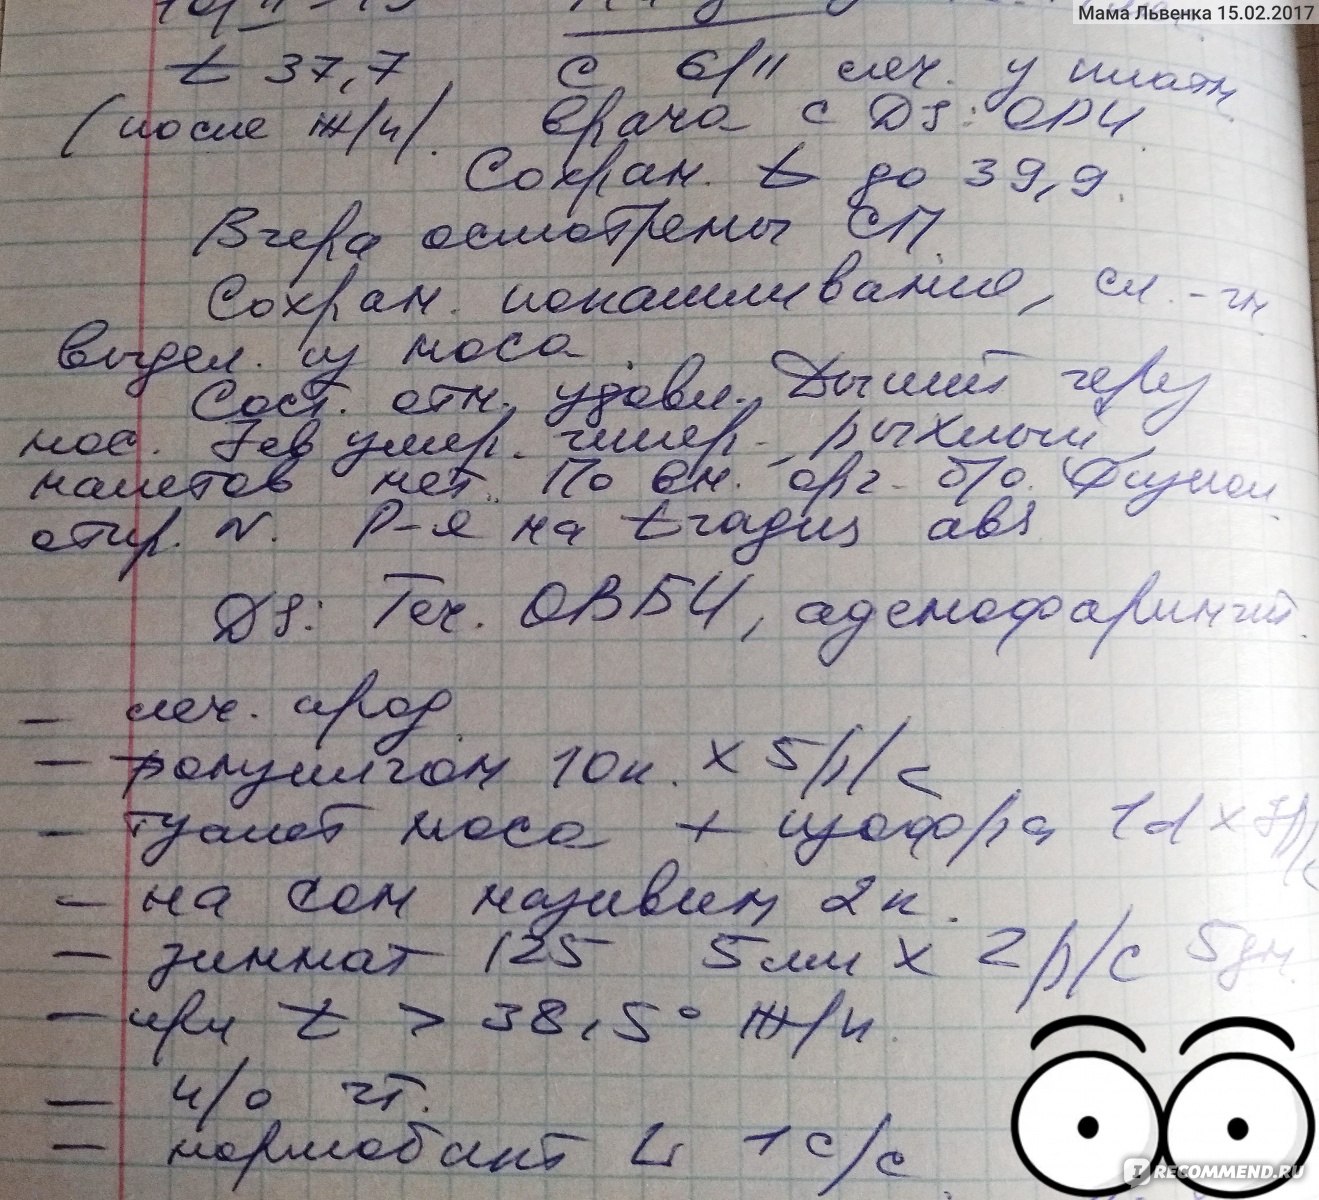 Мама Львенка 15.02.2017
t 37,7 с 6/II леч. у платн
(после ж/п). врача с DS: ОРИ
Сохран. t до 39,9.
Вчера осмотрены СП
Сохран. покашливание, сл.-гн
выдел. из носа.
Сост. отн. удовл. Дышит через
нос. Зев умер. гипер., рыхлый
налетов нет. По вн. орг. б/о. Физиол
отпр. N. Р-я на t гадиц abs
DS: Теч. ОВБИ, аденофарингит.
– леч. прод
– 10к. x 5 р/с
– туалет носа + изофра 1d x р/с
– на сон називин 2к.
– зиннат 125 5 мл x 2 р/с 5 дн.
– при t > 38,5° ж/п.
– ч/о чт.
– нормобакт L 1 с/с
IRECOMMEND.RU